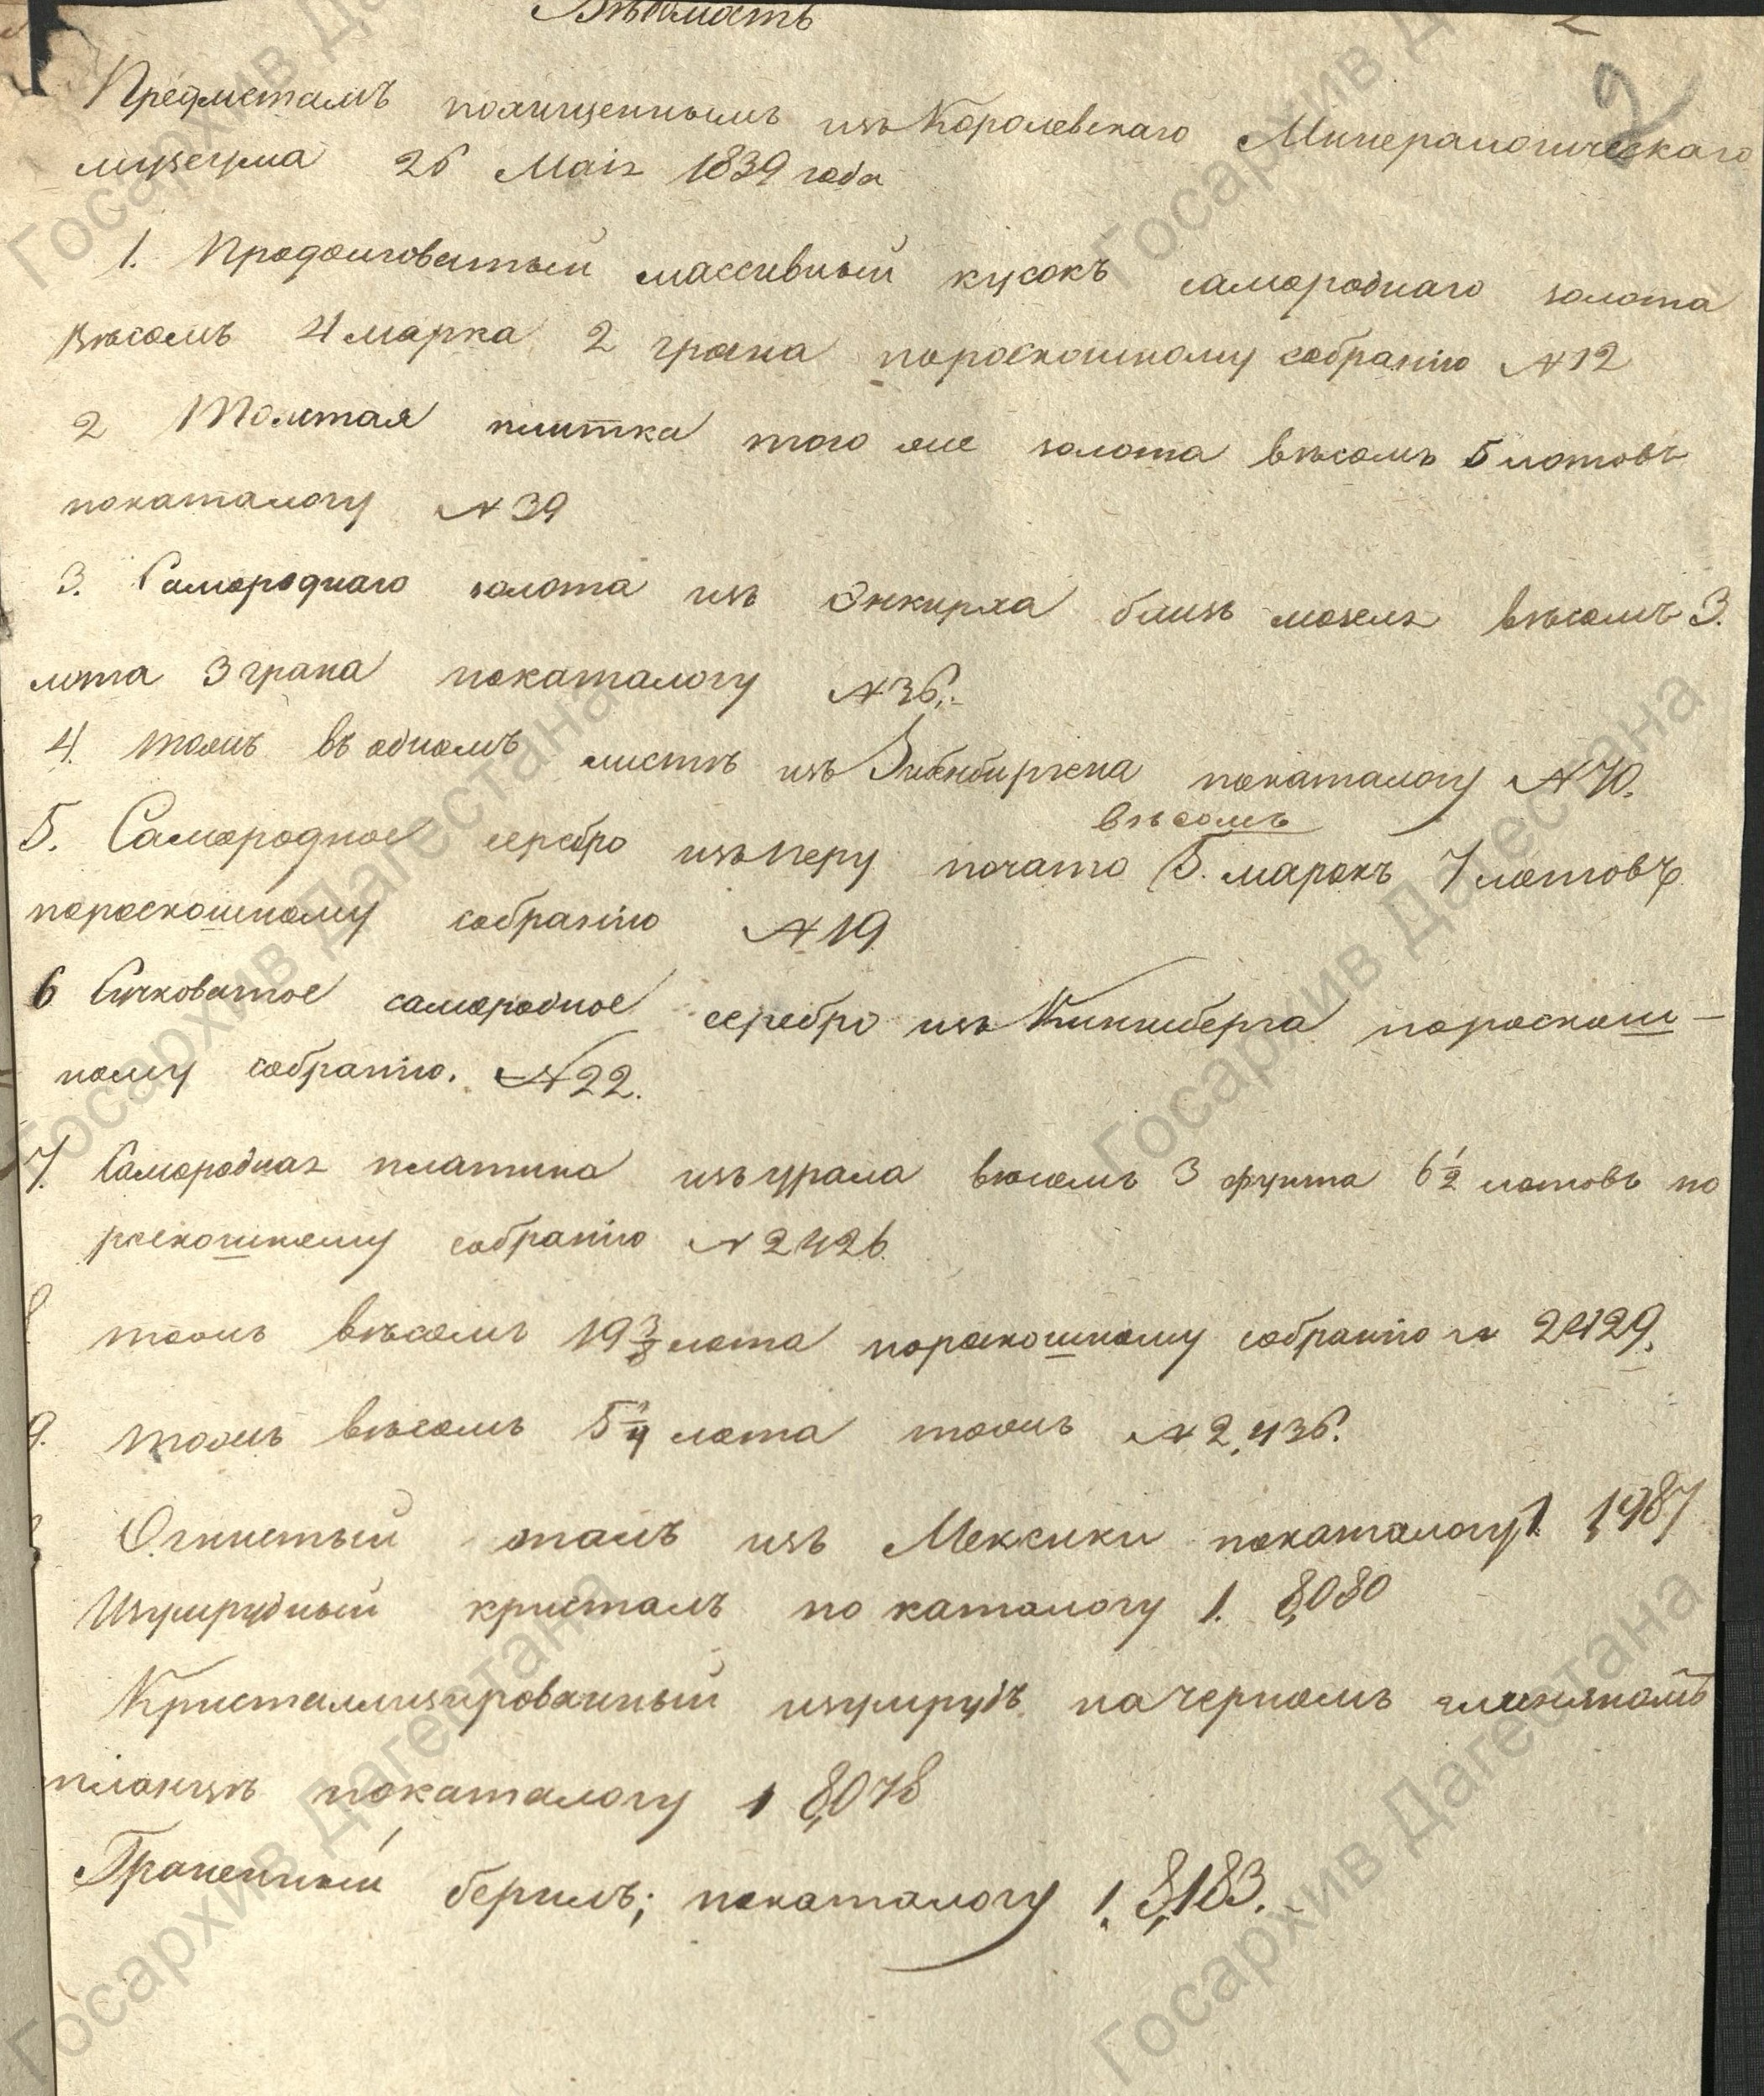 Вѣдомость
2
Предметамъ похищеннымъ изъ Королевскаго Минералогическаго
музеума 26 Маія 1839 года
1. Продолговатый массивный кусокъ самороднаго золота
вѣсомъ 4 марка 2 грана пороскошному собранію N 12
2 Толстая плитка того же золота вѣсомъ 5 лотовъ
покаталогу N 39
3. Самороднаго золота изъ Энкирха близъ мозеля вѣсомъ 3.
лота 3 грана покаталогу N 36.
4. тожъ въ одномъ листѣ изъ Зибенбиргена покаталогу N 70.
вѣсомъ
5. Самородное серебро изъ перу 5. марокъ 7 лотовъ
пороскошному собранію N 19
6 Сучковатое самородное серебро изъ пороскош-
ному собранію. N 22.
7. Самородная платина изъ урала вѣсомъ 3 фунта 6 1/2 лотовъ по
роскошному собранію N 2426.
8 тожъ вѣсомъ 19 3/8 лота пороскошному собранію N 2429.
9. тожъ вѣсомъ 5 1/4 лота тожъ N 2,436.
Огнистый опалъ изъ Мексики покаталогу 1. 1,987
Изумрудный кристалъ по каталогу 1. 8,080
Кристаллизированный изумрудъ начерномъ глиняномъ
покаталогу 1 8,078
Граненный берилъ; покаталогу 1. 8,183.
Госархив Дагестана